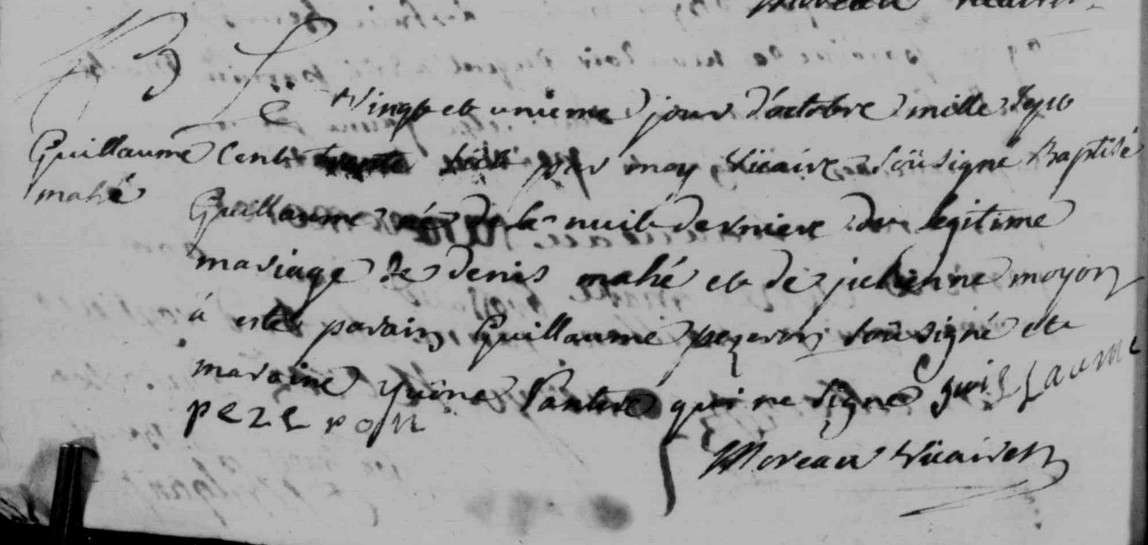 B
Guillaume
mahé
Le vingt et unieme jour d'octobre mille sept
cent par moy vicaire soüsigné Baptisé
Guillaume né de la nuit derniere du legitime
mariage de denis mahé et de julienne moyon
à esté parain Guillaume pezeron sousigné et
maraine yvone qui ne signe guillaume
pezeron
Moreau vicaire